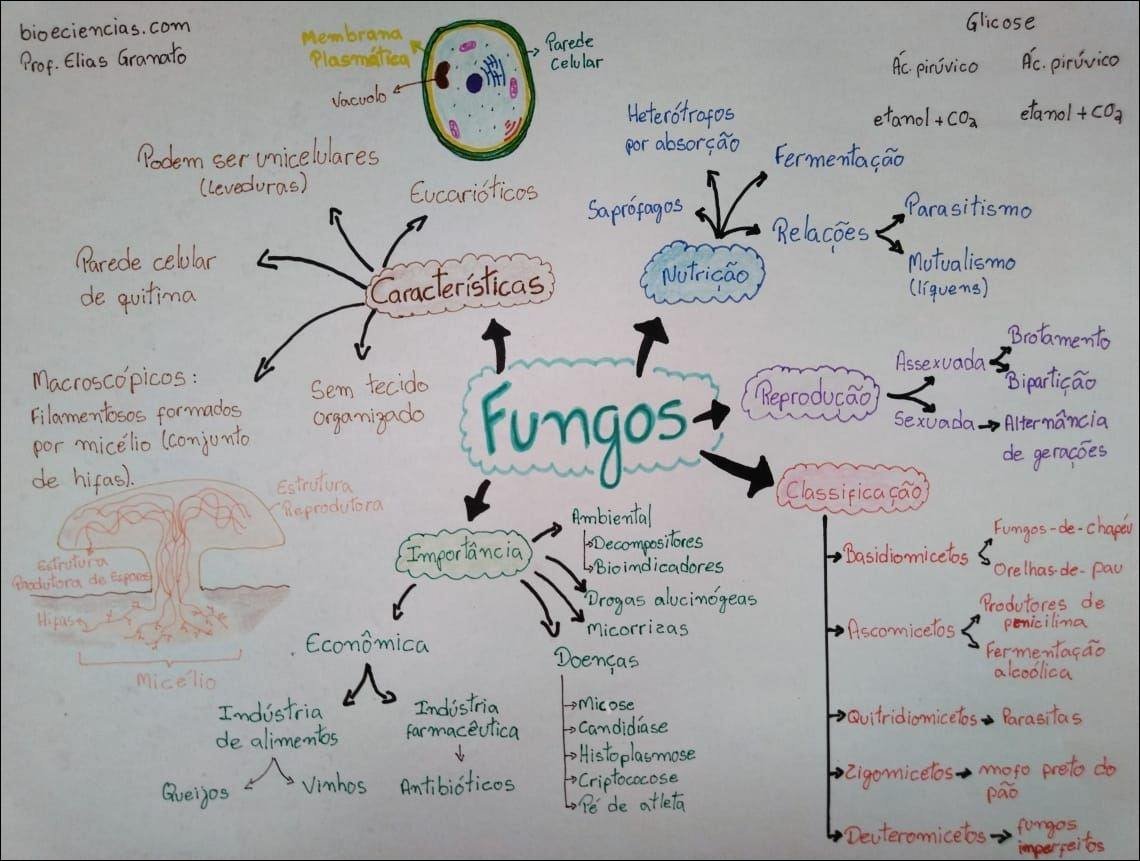 bioeciencias.com
Prof. Elias Granato
Membrana
Plasmática
Parede
Celular
Vacuolo
Glicose
Ác. pirúvico
Ác. pirúvico
etanol + CO2
etanol + CO2
Podem ser unicelulares
(Leveduras)
Eucarióticos
Parede celular
de quitina
Características
Macroscópicos:
Filamentosos formados
por micélio (conjunto
de hifas).
Sem tecido
organizado
Estrutura
Reprodutora
Estrutura
Produtora de Esporos
Hifas
Micélio
Heterótrafos
por absorção
Fermentação
Saprófagos
Relações
Parasitismo
Mutualismo
(líquens)
Nutrição
Fungos
Reprodução
Assexuada
Brotamento
Bipartição
Sexuada
Alternância
de gerações
Classificação
Basidiomicetos
Fungos-de-chapéu
Orelhas-de-pau
Ascomicetos
Produtores de
penicilina
Fermentação
alcoólica
Quitridiomicetos
Parasitas
Zigomicetos
mofo preto do
pão
Deuteromicetos
fungos
imperfeitos
Importância
Ambiental
Decompositores
Bioindicadores
Drogas alucinógeas
Micorrizas
Doenças
Micose
Candidíase
Histoplasmose
Criptococose
Pé de atleta
Econômica
Indústria
de alimentos
Queijos
Vinhos
Indústria
farmacêutica
Antibióticos